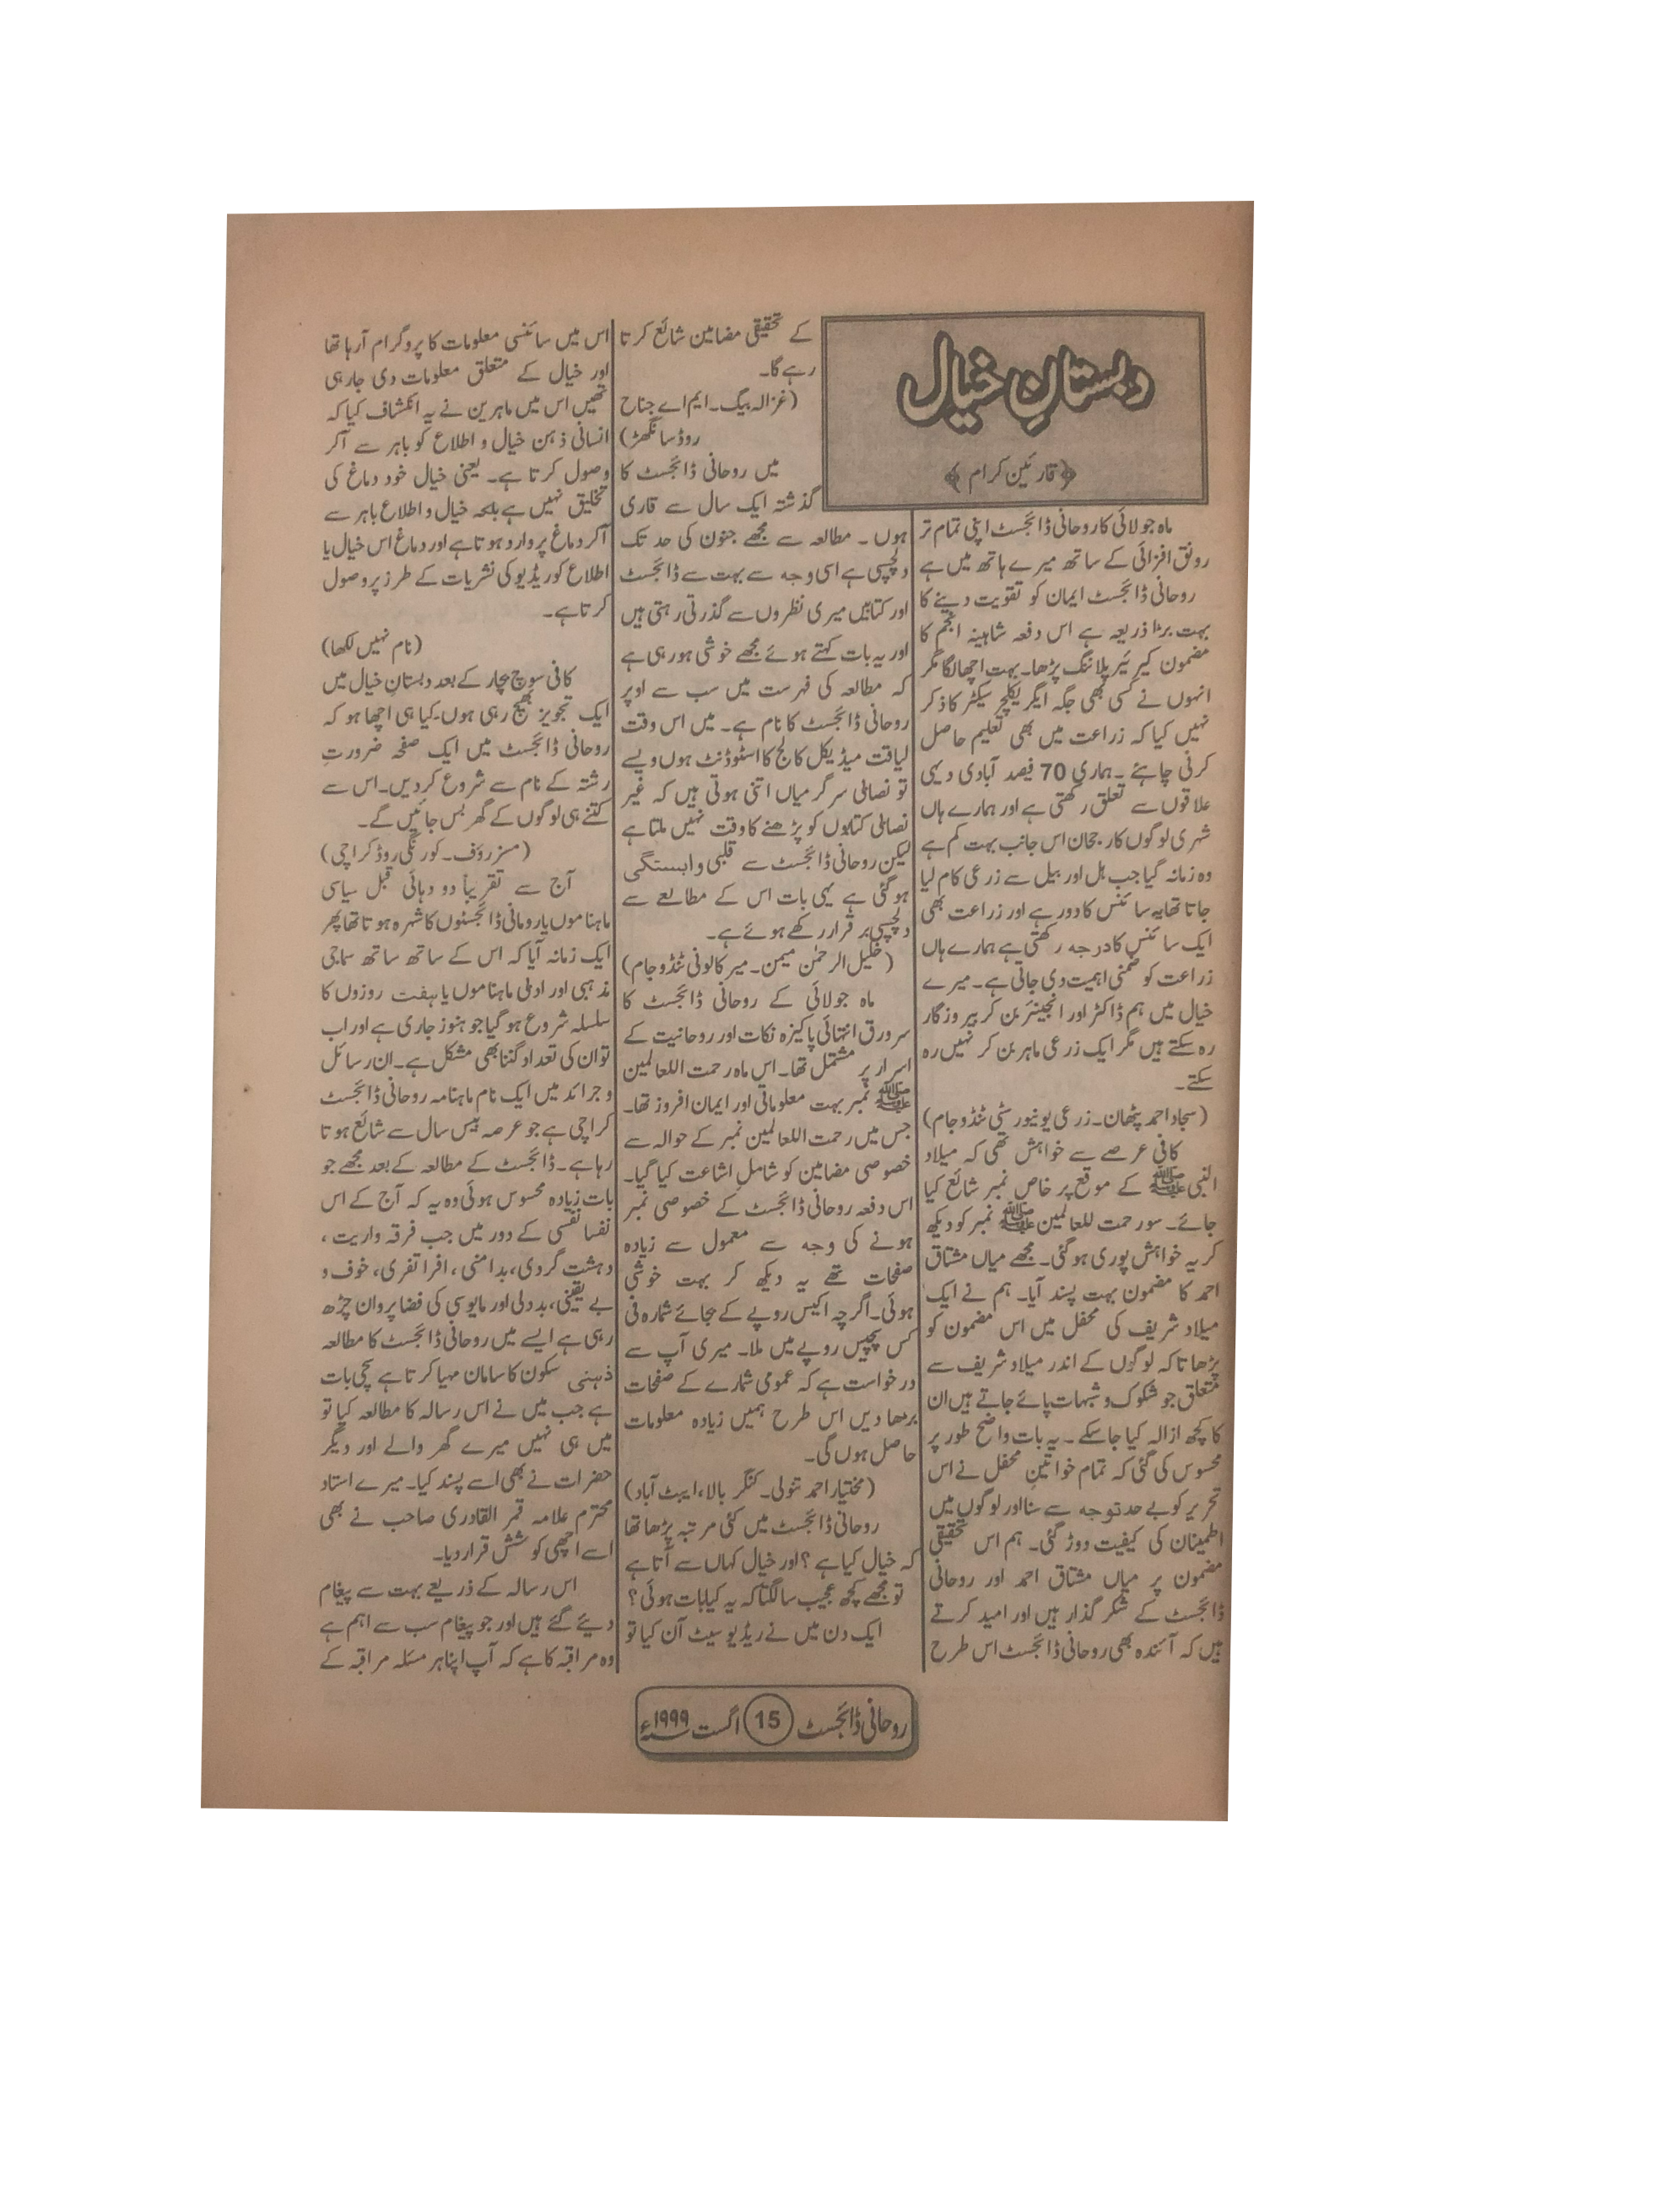 دبستانِ خیال
﴿قارئین کرام﴾
ماہ جولائی کا روحانی ڈائجسٹ اپنی تمام تر
رونق افزائی کے ساتھ میرے ہاتھ میں ہے
روحانی ڈائجسٹ ایمان کو تقویت دینے کا
بہت بڑا ذریعہ ہے اس دفعہ شاہینہ انجم کا
مضمون کیرئیر پلاننگ پڑھا۔ بہت اچھا لگا مگر
انہوں نے کسی بھی جگہ ایگریکلچر سیکٹر کا ذکر
نہیں کیا کہ زراعت میں بھی تعلیم حاصل
کرنی چاہئے۔ ہماری 70 فیصد آبادی دیہی
علاقوں سے تعلق رکھتی ہے اور ہمارے ہاں
شہری لوگوں کا رجحان اس جانب بہت کم ہے
وہ زمانہ گیا جب ہل اور بیل سے زرعی کام لیا
جاتا تھا یہ سائنس کا دور ہے اور زراعت بھی
ایک سائنس کا درجہ رکھتی ہے ہمارے ہاں
زراعت کو ضمنی اہمیت دی جاتی ہے۔ میرے
خیال میں ہم ڈاکٹر اور انجینئر بن کر بیروزگار
رہ سکتے ہیں مگر ایک زرعی ماہر بن کر نہیں رہ
سکتے۔
(سجاد احمد پٹھان۔ زرعی یونیورسٹی ٹنڈو جام)
کافی عرصے سے خواہش تھی کہ میلاد
النبی ﷺ کے موقع پر خاص نمبر شائع کیا
جائے۔ سو رحمت للعالمین ﷺ نمبر کو دیکھ
کر یہ خواہش پوری ہوگئی۔ مجھے میاں مشتاق
احمد کا مضمون بہت پسند آیا۔ ہم نے ایک
میلاد شریف کی محفل میں اس مضمون کو
پڑھا تاکہ لوگوں کے اندر میلاد شریف سے
متعلق جو شکوک و شبہات پائے جاتے ہیں ان
کا کچھ ازالہ کیا جا سکے۔ یہ بات واضح طور پر
محسوس کی گئی کہ تمام خواتین محفل نے اس
تحریر کو بے حد توجہ سے سنا اور لوگوں میں
اطمینان کی کیفیت دوڑ گئی۔ ہم اس تحقیقی
مضمون پر میاں مشتاق احمد اور روحانی
ڈائجسٹ کے شکر گذار ہیں اور امید کرتے
ہیں کہ آئندہ بھی روحانی ڈائجسٹ اس طرح
کے تحقیقی مضامین شائع کرتا
رہے گا۔
(غزالہ بیگ۔ ایم اے جناح
روڈ سانگھڑ)
میں روحانی ڈائجسٹ کا
گذشتہ ایک سال سے قاری
ہوں۔ مطالعہ سے مجھے جنون کی حد تک
دلچسپی ہے اسی وجہ سے بہت سے ڈائجسٹ
اور کتابیں میری نظروں سے گذرتی رہتی ہیں
اور یہ بات کہتے ہوئے مجھے خوشی ہو رہی ہے
کہ مطالعہ کی فہرست میں سب سے اوپر
روحانی ڈائجسٹ کا نام ہے۔ میں اس وقت
لیاقت میڈیکل کالج کا اسٹوڈنٹ ہوں ویسے
تو نصابی سرگرمیاں اتنی ہوتی ہیں کہ غیر
نصابی کتابوں کو پڑھنے کا وقت نہیں ملتا ہے
لیکن روحانی ڈائجسٹ سے قلبی وابستگی
ہوگئی ہے یہی بات اس کے مطالعے سے
دلچسپی برقرار رکھے ہوئے ہے۔
(خلیل الرحمٰن میمن۔ میر کالونی ٹنڈو جام)
ماہ جولائی کے روحانی ڈائجسٹ کا
سرورق انتہائی پاکیزہ نکات اور روحانیت کے
اسرار پر مشتمل تھا۔ اس ماہ رحمت اللعالمین
ﷺ نمبر بہت معلوماتی اور ایمان افروز تھا۔
جس میں رحمت اللعالمین نمبر کے حوالہ سے
خصوصی مضامین کو شاملِ اشاعت کیا گیا۔
اس دفعہ روحانی ڈائجسٹ کے خصوصی نمبر
ہونے کی وجہ سے معمول سے زیادہ
صفحات تھے یہ دیکھ کر بہت خوشی
ہوئی۔ اگرچہ اکیس روپے کے بجائے شمارہ فی
کس پچیس روپے میں ملا۔ میری آپ سے
درخواست ہے کہ عمومی شمارے کے صفحات
بڑھا دیں اس طرح ہمیں زیادہ معلومات
حاصل ہوں گی۔
(مختیار احمد تنولی۔ کنگر بالا، ایبٹ آباد)
روحانی ڈائجسٹ میں کئی مرتبہ پڑھا تھا
کہ خیال کیا ہے؟ اور خیال کہاں سے آتا ہے
تو مجھے کچھ عجیب سا لگتا کہ یہ کیا بات ہوئی؟
ایک دن میں نے ریڈیو سیٹ آن کیا تو
اس میں سائنسی معلومات کا پروگرام آرہا تھا
اور خیال کے متعلق معلومات دی جارہی
تھیں اس میں ماہرین نے یہ انکشاف کیا کہ
انسانی ذہن خیال و اطلاع کو باہر سے آکر
وصول کرتا ہے۔ یعنی خیال خود دماغ کی
تخلیق نہیں ہے بلکہ خیال و اطلاع باہر سے
آکر دماغ پر وارد ہوتا ہے اور دماغ اس خیال یا
اطلاع کو ریڈیو کی نشریات کے طرز پر وصول
کرتا ہے۔
(نام نہیں لکھا)
کافی سوچ بچار کے بعد دبستانِ خیال میں
ایک تجویز بھیج رہی ہوں۔ کیا ہی اچھا ہو کہ
روحانی ڈائجسٹ میں ایک صفحہ ضرورتِ
رشتہ کے نام سے شروع کردیں۔ اس سے
کتنے ہی لوگوں کے گھر بس جائیں گے۔
(مسز رؤف۔ کورنگی روڈ کراچی)
آج سے تقریباً دو دہائی قبل سیاسی
ماہناموں یا رومانی ڈائجسٹوں کا شہرہ ہوتا تھا پھر
ایک زمانہ آیا کہ اس کے ساتھ ساتھ سماجی
مذہبی اور ادبی ماہناموں یا ہفت روزوں کا
سلسلہ شروع ہوگیا جو ہنوز جاری ہے اور اب
تو ان کی تعداد گننا بھی مشکل ہے۔ ان رسائل
و جرائد میں ایک نام ماہنامہ روحانی ڈائجسٹ
کراچی ہے جو عرصہ بیس سال سے شائع ہوتا
رہا ہے۔ ڈائجسٹ کے مطالعہ کے بعد مجھے جو
بات زیادہ محسوس ہوئی وہ یہ کہ آج کے اس
نفسا نفسی کے دور میں جب فرقہ واریت،
دہشت گردی، بدامنی، افراتفری، خوف و
بے یقینی، بددلی اور مایوسی کی فضا پروان چڑھ
رہی ہے ایسے میں روحانی ڈائجسٹ کا مطالعہ
ذہنی سکون کا سامان مہیا کرتا ہے سچی بات
ہے جب میں نے اس رسالہ کا مطالعہ کیا تو
میں ہی نہیں میرے گھر والے اور دیگر
حضرات نے بھی اسے پسند کیا۔ میرے استاد
محترم علامہ قمر القادری صاحب نے بھی
اسے اچھی کوشش قرار دیا۔
اس رسالہ کے ذریعے بہت سے پیغام
دیئے گئے ہیں اور جو پیغام سب سے اہم ہے
وہ مراقبہ کا ہے کہ آپ اپنا ہر مسئلہ مراقبہ کے
روحانی ڈائجسٹ 15 اگست ۱۹۹۹ء